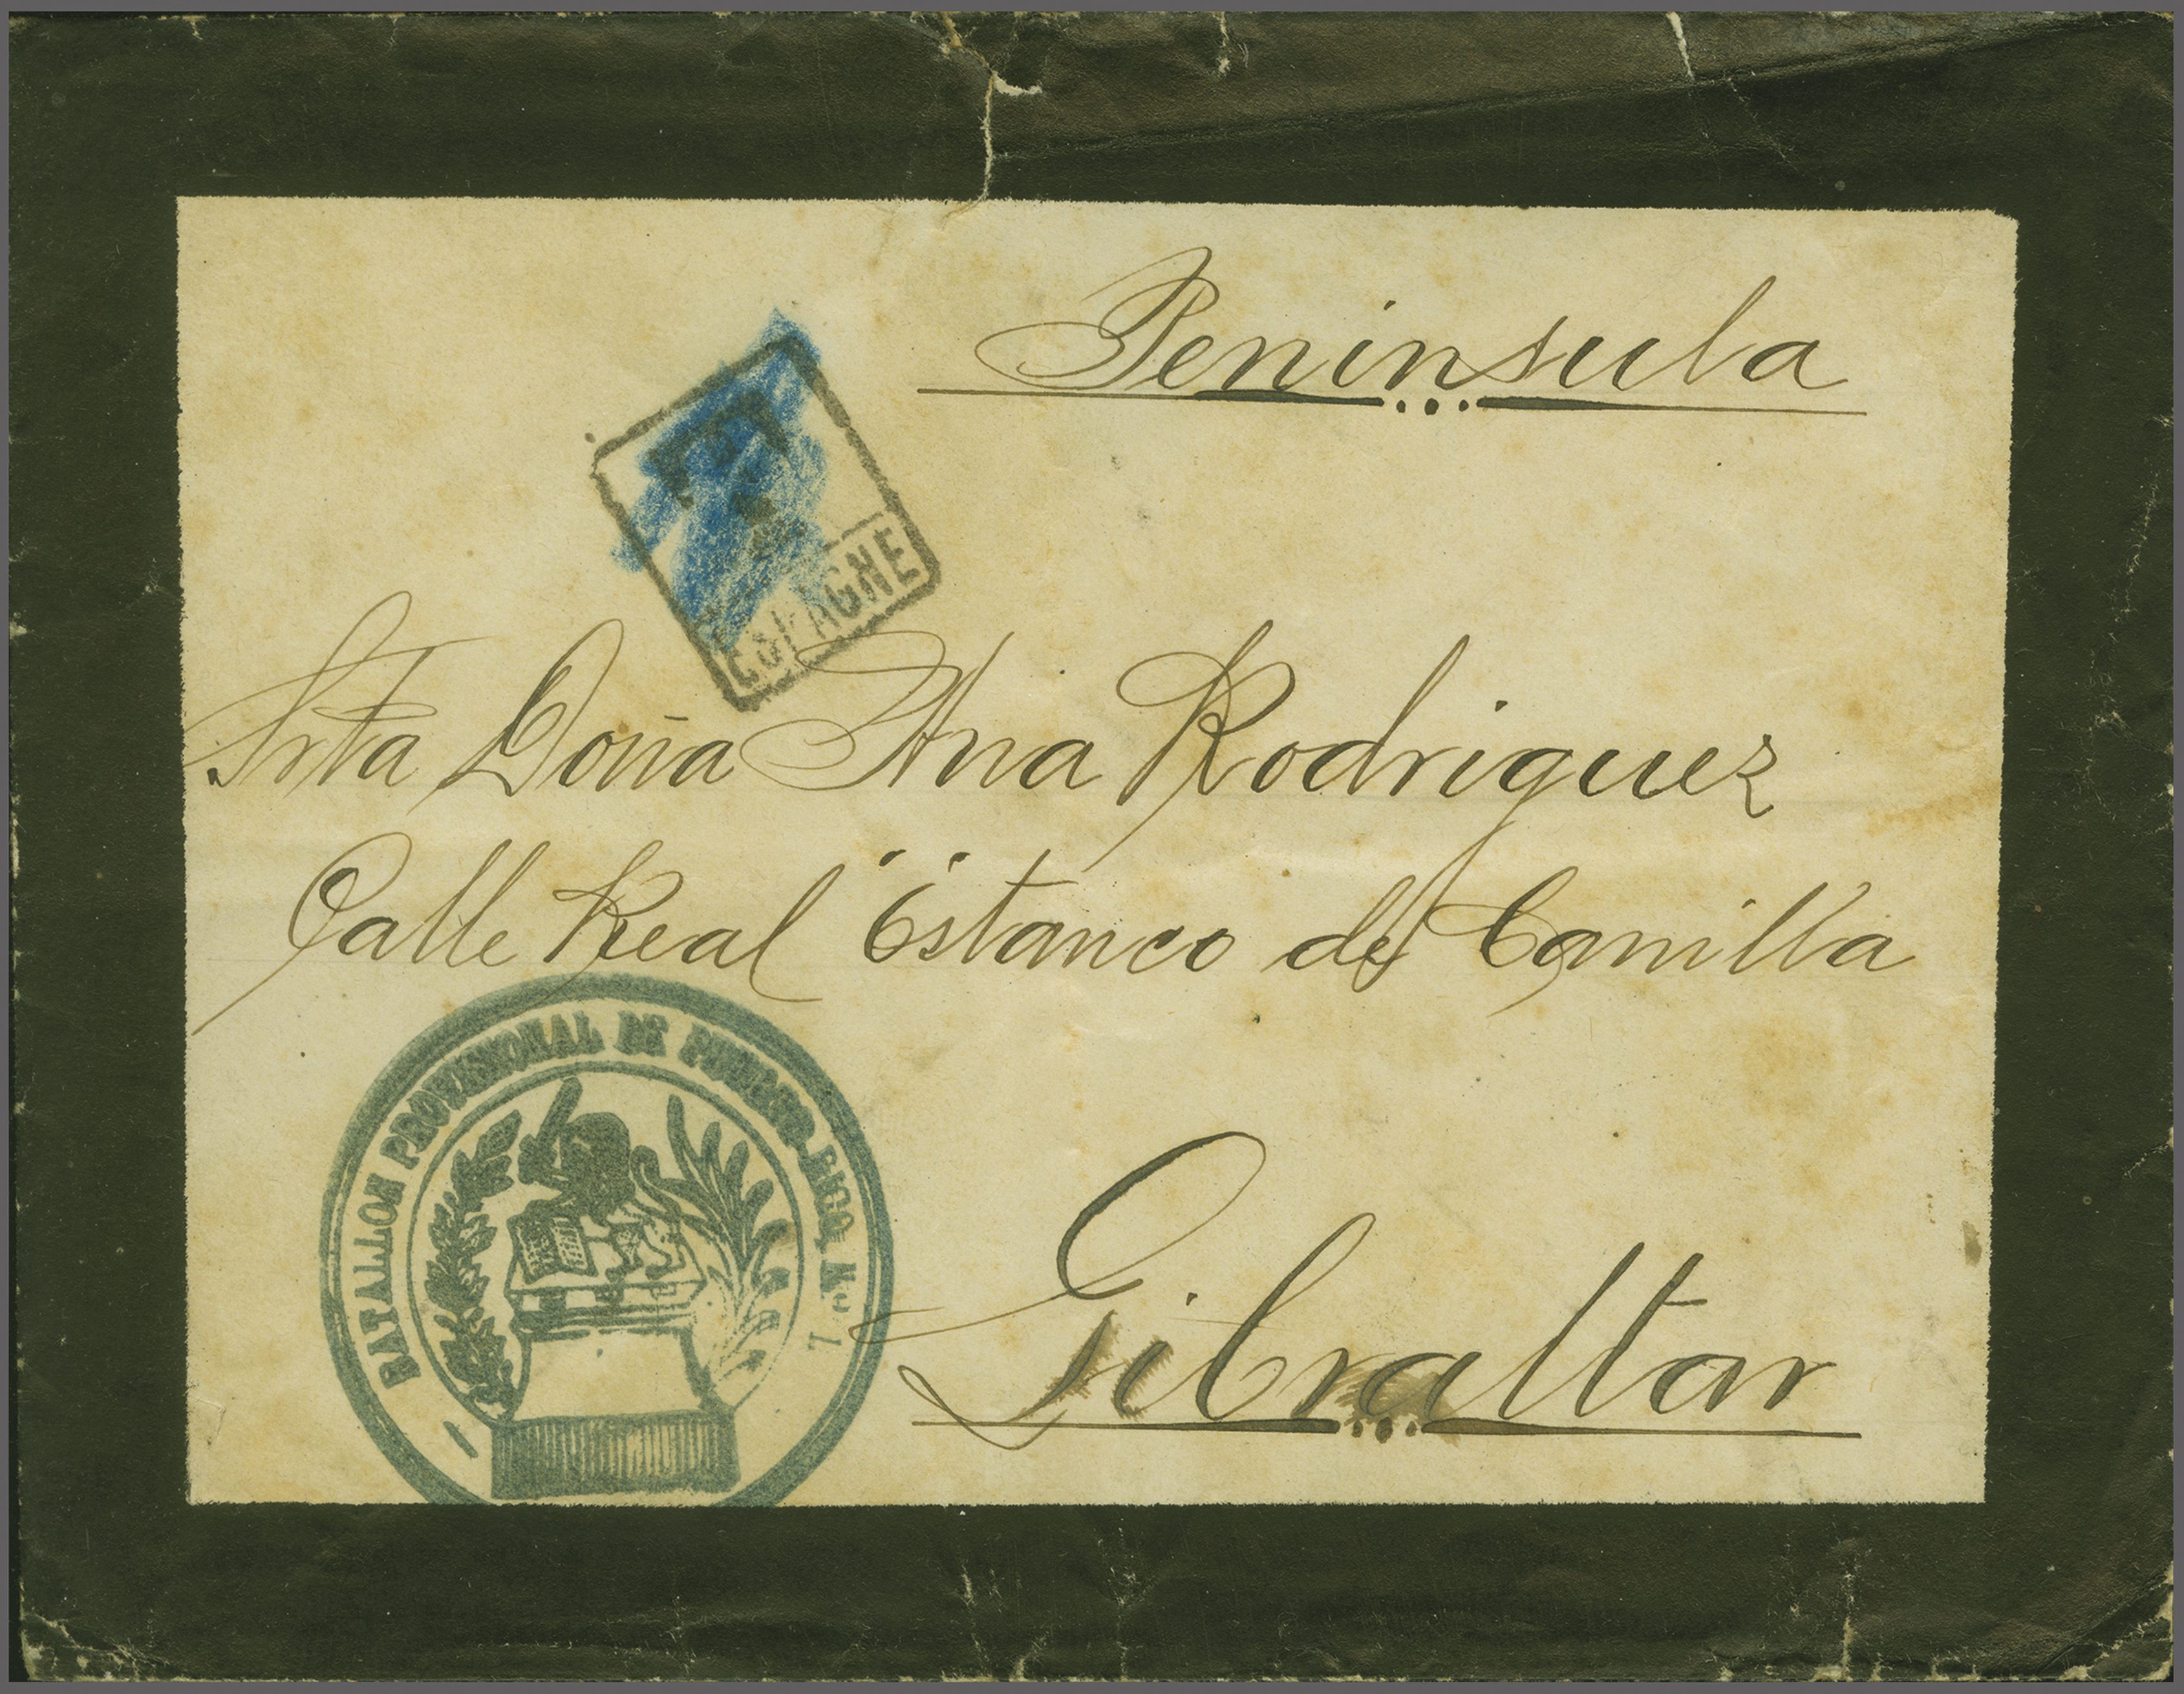 Peninsula
T
ESPAGNE
Srta Doña Ana Rodriguez
Calle Real Estanco de Canilla
BATALLON PROVISIONAL DE PUERTO-RICO, No. 1
Gibraltar